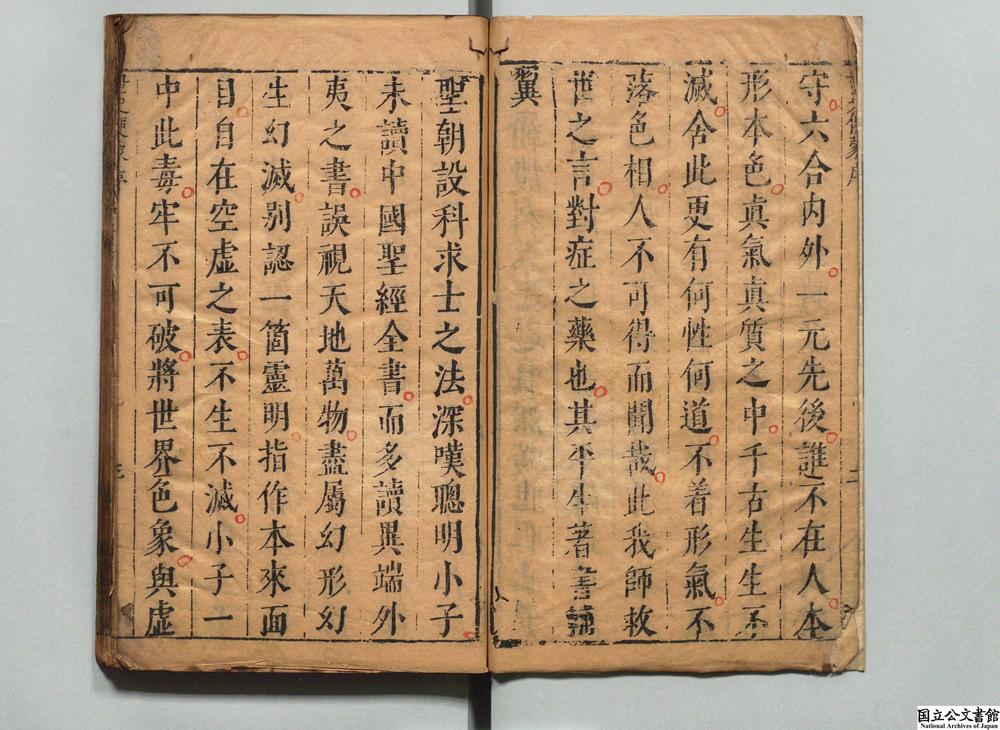 守六合内外一元先後誰不在人本
形本色眞氣眞質之中千古生生不
滅舍此更有何性何道不着形氣不
落色相人不可得而聞哉此我師救
世之言對症之藥也其平生著書
翼
聖朝設科求士之法深嘆聰明小子
未讀中國聖經全書而多讀異端外
夷之書誤視天地萬物盡屬幻形幻
生幻滅别認一箇靈明指作本來面
目自在空虚之表不生不滅小子一
中此毒牢不可破將世界色象與虚
国立公文書館
National Archives of Japan